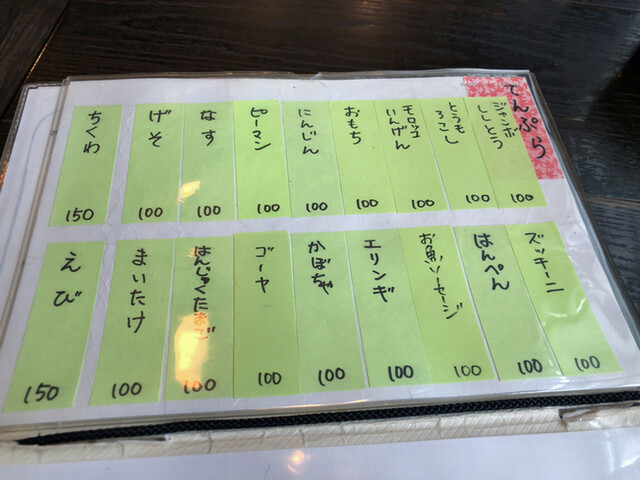 てんぷら
ジャンボ
ししとう
100
とうも
ろこし
100
モロッコ
いんげん
100
おもち
100
にんじん
100
ピーマン
100
なす
100
げそ
100
ちくわ
150
ズッキーニ
100
はんぺん
100
お魚ソーセージ
100
エリンギ
100
かぼちゃ
100
ゴーヤ
100
はんじゅくたまご
100
まいたけ
100
えび
150